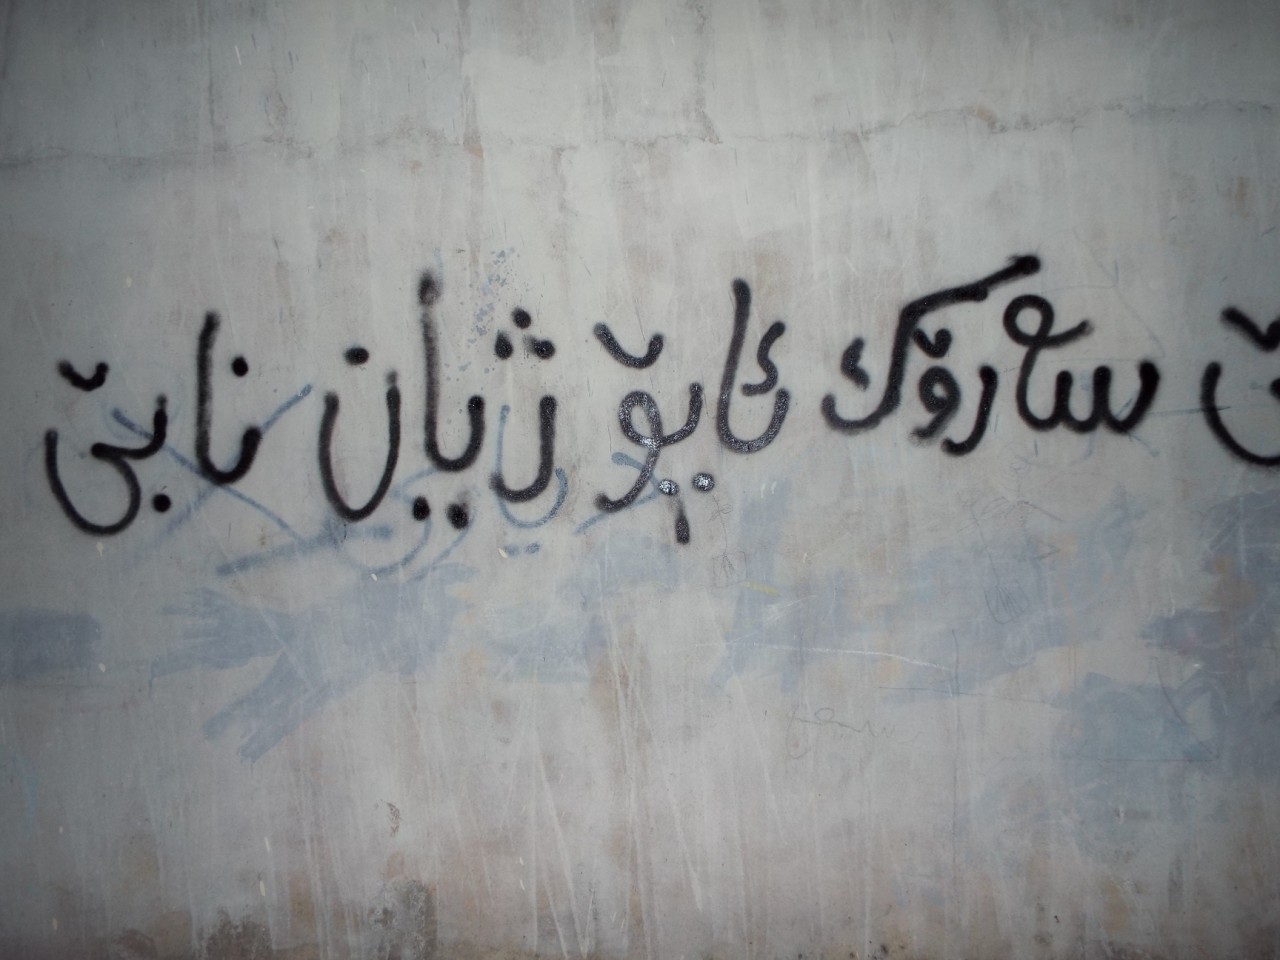 سەرۆک ئاپۆ ژیان نابێ